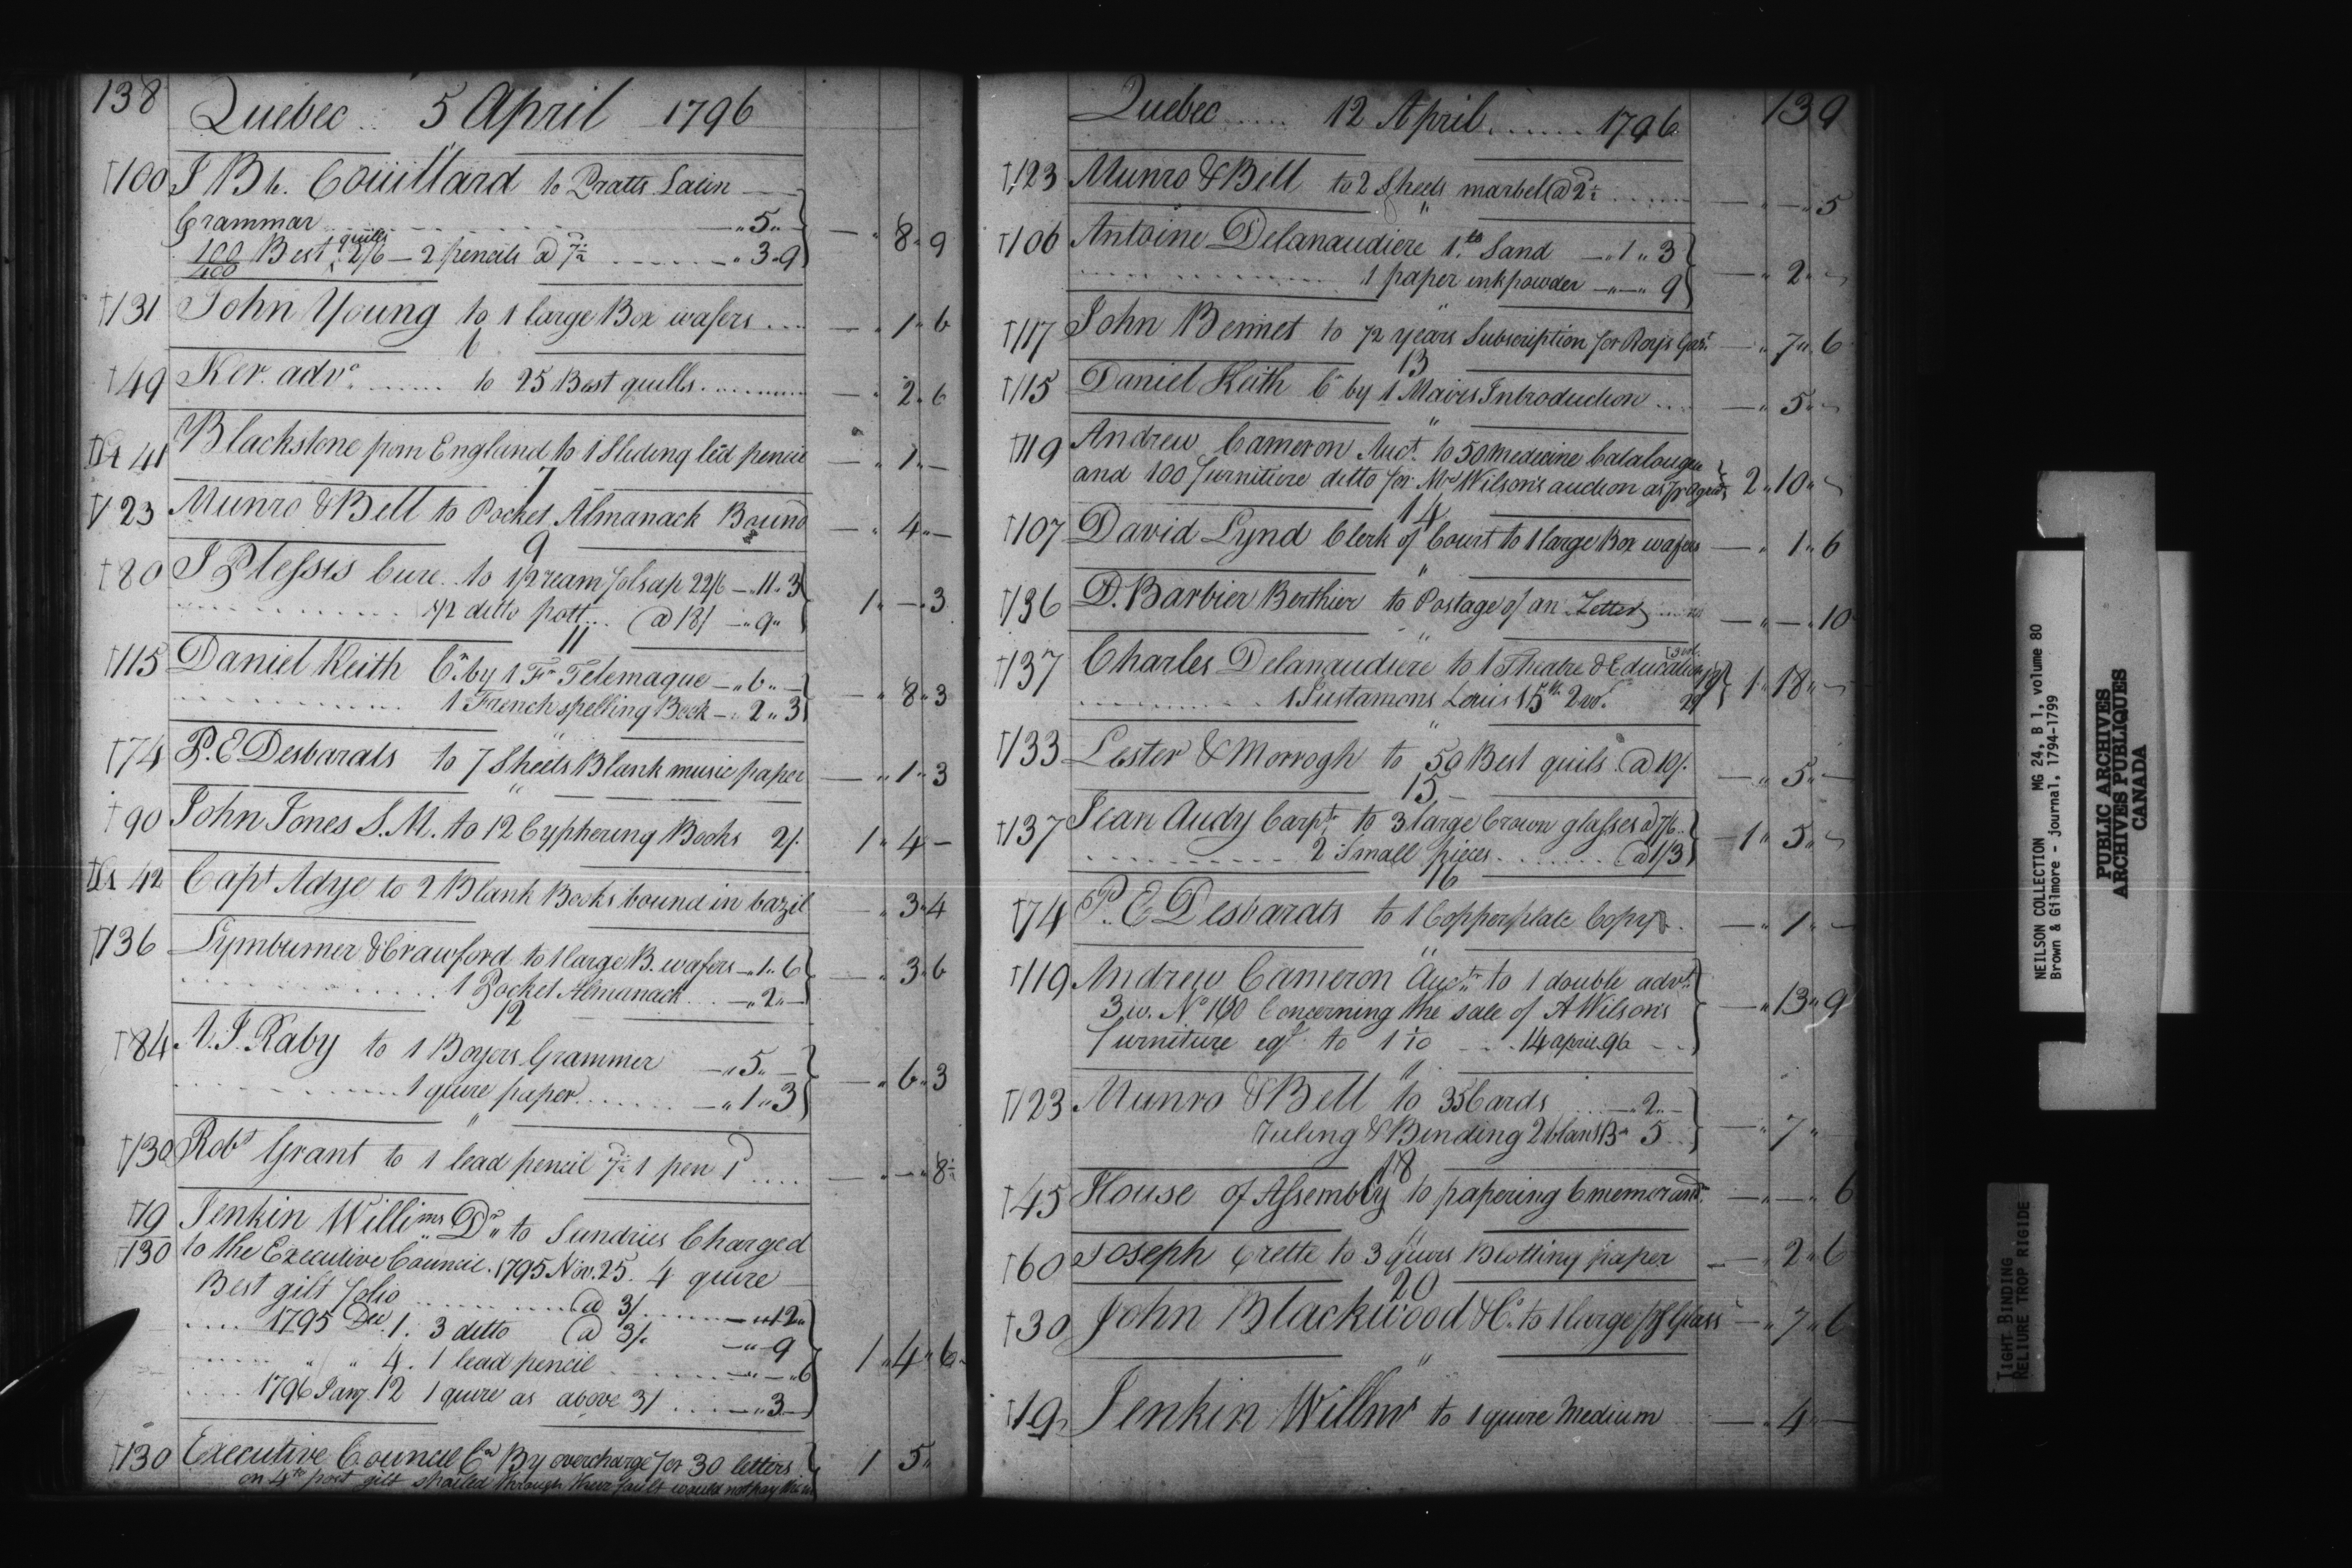 138
Quebec 5 April 1796
†100 J Bt. Couillard to Pratts Latin
Grammar - " 5 "
100 Best quills 2/6 — 2 pencils @ 7½ - " 3 " 9 — " 8 " 9
400
†131 John Young to 1 large Box wafers — " 1 " 6
6
†49 Ker. advo. to 25 Best quills — " 2 " 6
"
41 Blackstone from England to 1 Sliding led pencil — " 1 " —
7
†123 Munro & Bell to Pocket Almanack Bound — " 4 " —
9
†80 J Plessis Cure to 1/2 ream folscap 22/6 — " 11 " 3
1/2 ditto pott @ 18/ — " 9 " 1 " — " 3
11
†115 Daniel Keith Cr. by 1 Fr Telemaque — " 6 " —
1 French spelling Book — " 2 " 3 — " 8 " 3
"
†74 P. E Desbarats to 7 Sheets Blank music paper — " 1 " 3
"
†90 John Jones S. M. to 12 Cyphering Books 2/. 1 " 4 —
42 Capt Adye to 2 Blank Books bound in bazil — " 3 " 4
†136 Lymburner & Crawford to 1 large B. wafers — " 1 " 6
1 Pocket Almanack — " 2 " — — " 3 " 6
12
†84 A. J. Raby to 1 Boyers Grammer — " 5 " —
1 quire paper — " 1 " 3 — " 6 " 3
"
†130 Robt Grant to 1 lead pencil 7½ 1 pen 1d — " — " 8½
†19 Jenkin Willims Dr. to Sundries Charged
†130 to the Executive Council. 1795 Nov. 25. 4 quire
Best gilt folio @ 3/ — " 12 "
1795 Dec 1. 3 ditto @ 3/. — " 9
" " 4. 1 lead pencil — " — " 6 1 " 4 " 6
1796 Jany. 12 1 quire as above 3/ — " 3 —
†130 Executive Council Cr By overcharge for 30 letters 1 5 "
on 4to post gilt spoiled through their fault would not pay
Quebec 12 April 1796
139
†123 Munro & Bell to 2 Sheets marbel @ 2½ — " — " 5
"
†106 Antoine Delanaudiere 1 lb Sand — " 1 " 3
1 paper inkpowder — " — " 9 — " 2 " —
"
†117 John Bennet to 1/2 years Subscription for Roy's Gazt. — " 7 " 6
13
†115 Daniel Keith Cr by 1 Mairs Introduction — " 5 " —
"
†119 Andrew Cameron Auct. to 50 medicine Catalougue
and 100 furniture ditto for Mrs Wilson's auction as pr agrd. 2 " 10 " —
14
†107 David Lynd Clerk of Court to 1 large Box wafers — " 1 " 6
"
†136 D. Barbier Berthier to Postage of an Letter — " — " 10
"
†137 Charles Delanaudiere to 1 Theatre & Education
1 Sustamons Louis 15th 2 vol. 1 " 18 " —
"
†133 Lester & Morrogh to 50 Best quils @ 10/. — " 5 " —
15
†137 Jean Audy Carptr to 3 large Crown glasses @ 7/6
2 Small pieces @ 1/3 — 1 " 5 " —
16
†74 P. E Desbarats to 1 Copperplate Copy — " 1 " —
"
†119 Andrew Cameron Auctr. to 1 double advt.
3 w. No 160 Concerning the sale of A Wilson's
furniture eql. to 14 april 96 — " 13 " 9
"
†123 Munro & Bell to 35 Cards — " 2 " —
ruling & Binding 2 blank Bs 5 — " 7 "
18
†45 House of Assembly to papering 6 memorand. — " — " 6
"
†60 Joseph Crette to 3 quirs Blotting paper — " 2 " 6
20
†30 John Blackwood & Co. to 1 large Glass — " 7 " 6
"
†19 Jenkin Willms to 1 quire Medium — " 4 " —
NEILSON COLLECTION MG 24, B 1, volume 80
Brown & Gilmore - journal, 1794-1799
PUBLIC ARCHIVES
ARCHIVES PUBLIQUES
CANADA
TIGHT BINDING
RELIURE TROP RIGIDE